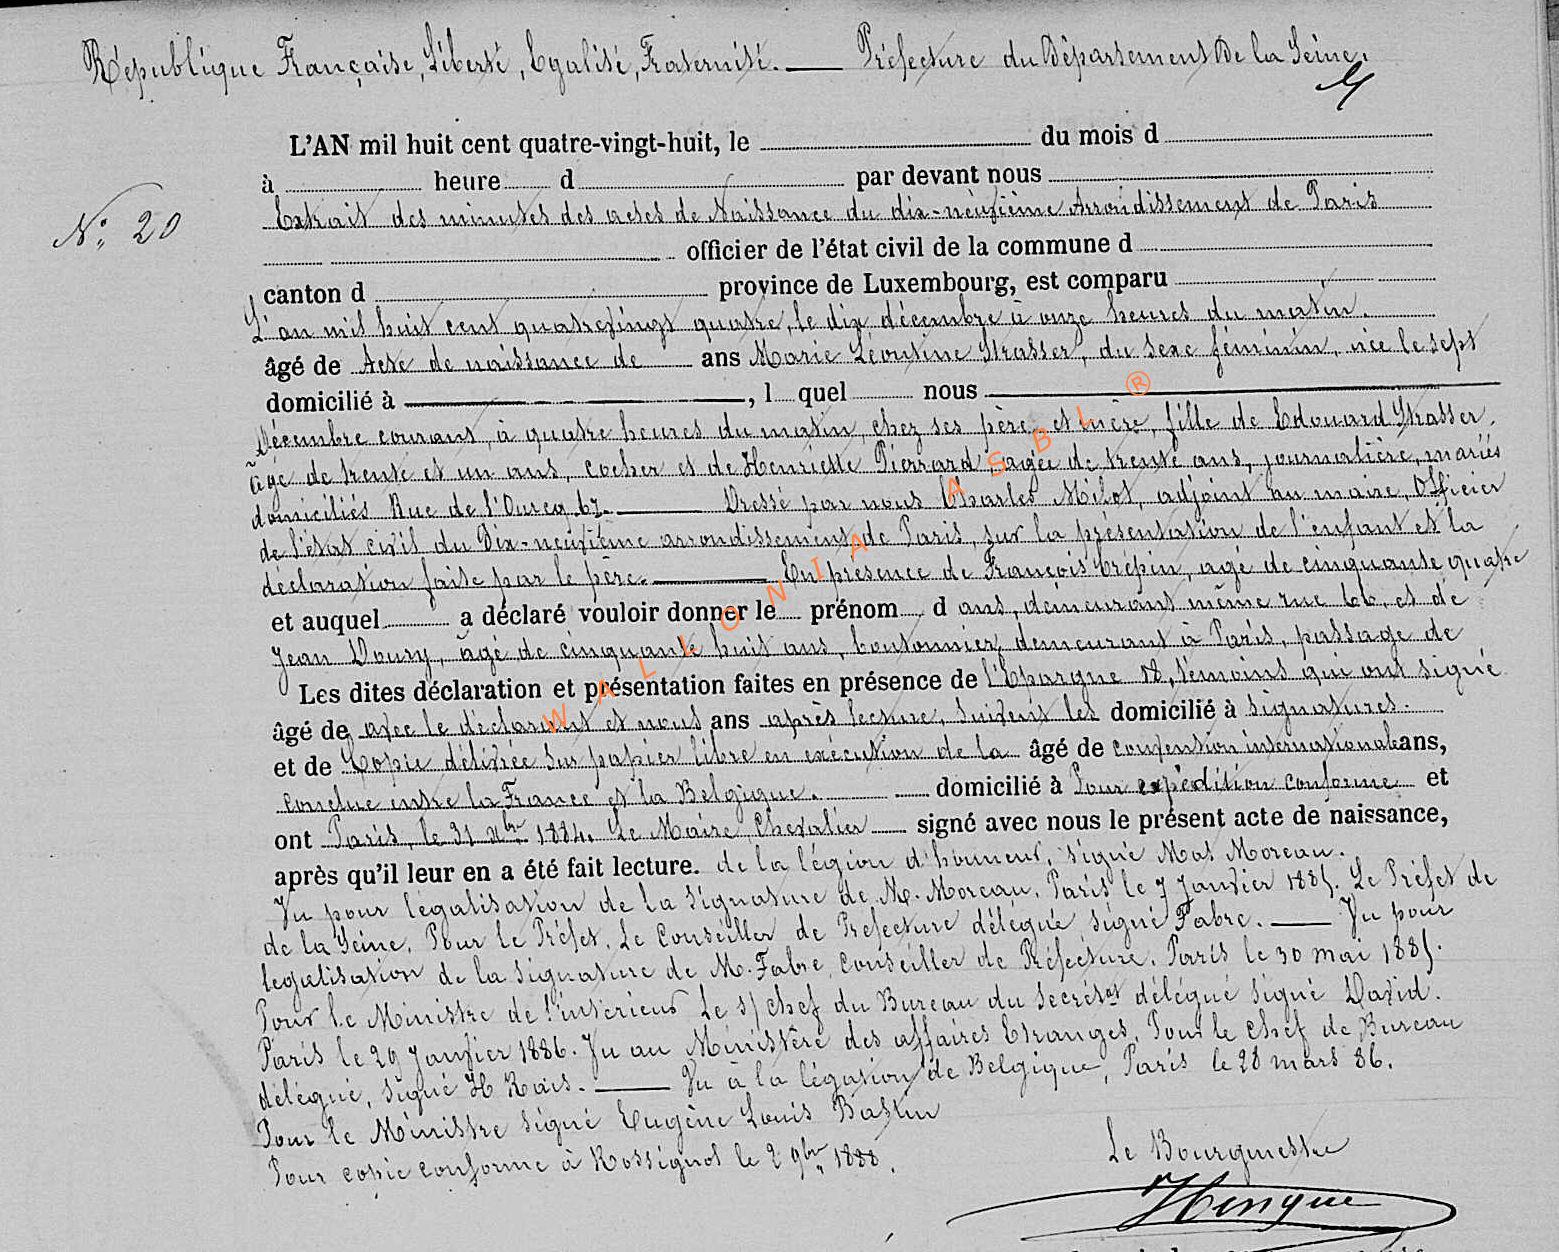 République Française, Liberté, Egalité, Fraternité. — Préfecture du Département De la Seine.
L'AN mil huit cent quatre-vingt-huit, le du mois d
à heure d par devant nous
N° 20
Extrait des minutes des actes de Naissance du dix-neuvième Arrondissement de Paris
officier de l'état civil de la commune d
canton d province de Luxembourg, est comparu
L'an mil huit cent quatrevingt quatre, le dix décembre à onze heures du matin.
âgé de Acte de naissance de ans Marie Léontine Strasser, du sexe féminin, née le sept
domicilié à , l quel nous
Décembre courant, à quatre heures du matin, chez ses père et mère, fille de Edouard Strasser,
âgé de trente et un ans, cocher et de Henriette Pierrard, agée de trente ans, journalière, mariés
domiciliés Rue de l'Ourcq 67. — Dressé par nous Charles Milot, adjoint au maire, Officier
de l'état civil du Dix-neuvième arrondissement de Paris, sur la présentation de l'enfant et la
déclaration faite par le père. — En présence de François Crépin, agé de cinquante quatre
et auquel a déclaré vouloir donner le prénom d ans, demeurant même rue 66, et de
Jean Doury, âgé de cinquante huit ans, boutonnier, demeurant à Paris, passage de
Les dites déclaration et présentation faites en présence de l'Epargne 18, témoins qui ont signé
âgé de avec le déclarant et nous ans après lecture, Suivent les domicilié à signatures.
et de Copie délivrée sur papier libre en exécution de la âgé de convention internationale ans,
conclue entre la France et la Belgique. domicilié à Pour expédition conforme et
ont Paris, le 31 Xbre 1884. Le Maire, Chevalier signé avec nous le présent acte de naissance,
après qu'il leur en a été fait lecture. de la légion d'honneur, signé Mat Moreau.
Vu pour légalisation de la signature de M. Moreau. Paris le 7 Janvier 1885. Le Préfet de
de la Seine, Pour le Préfet, Le Conseiller de Préfecture délégué signé Fabre. — Vu pour
legalisation de la signature de M. Fabre, conseiller de Préfecture. Paris le 30 mai 1885.
Pour le Ministre de l'intérieur Le s/chef du Bureau du secrétat délégué signé David.
Paris le 29 Janvier 1886. Vu au Ministère des affaires Etranges, Pour le chef de Bureau
délégué, signé H Rais. — Vu à la légation de Belgique, Paris le 28 mars 86.
Pour le Ministre signé Eugène Louis Bastin
Pour copie conforme à Rossignol le 2 9bre 1888.
Le Bourgmestre
Hengue
WALLONIA ASBL ®